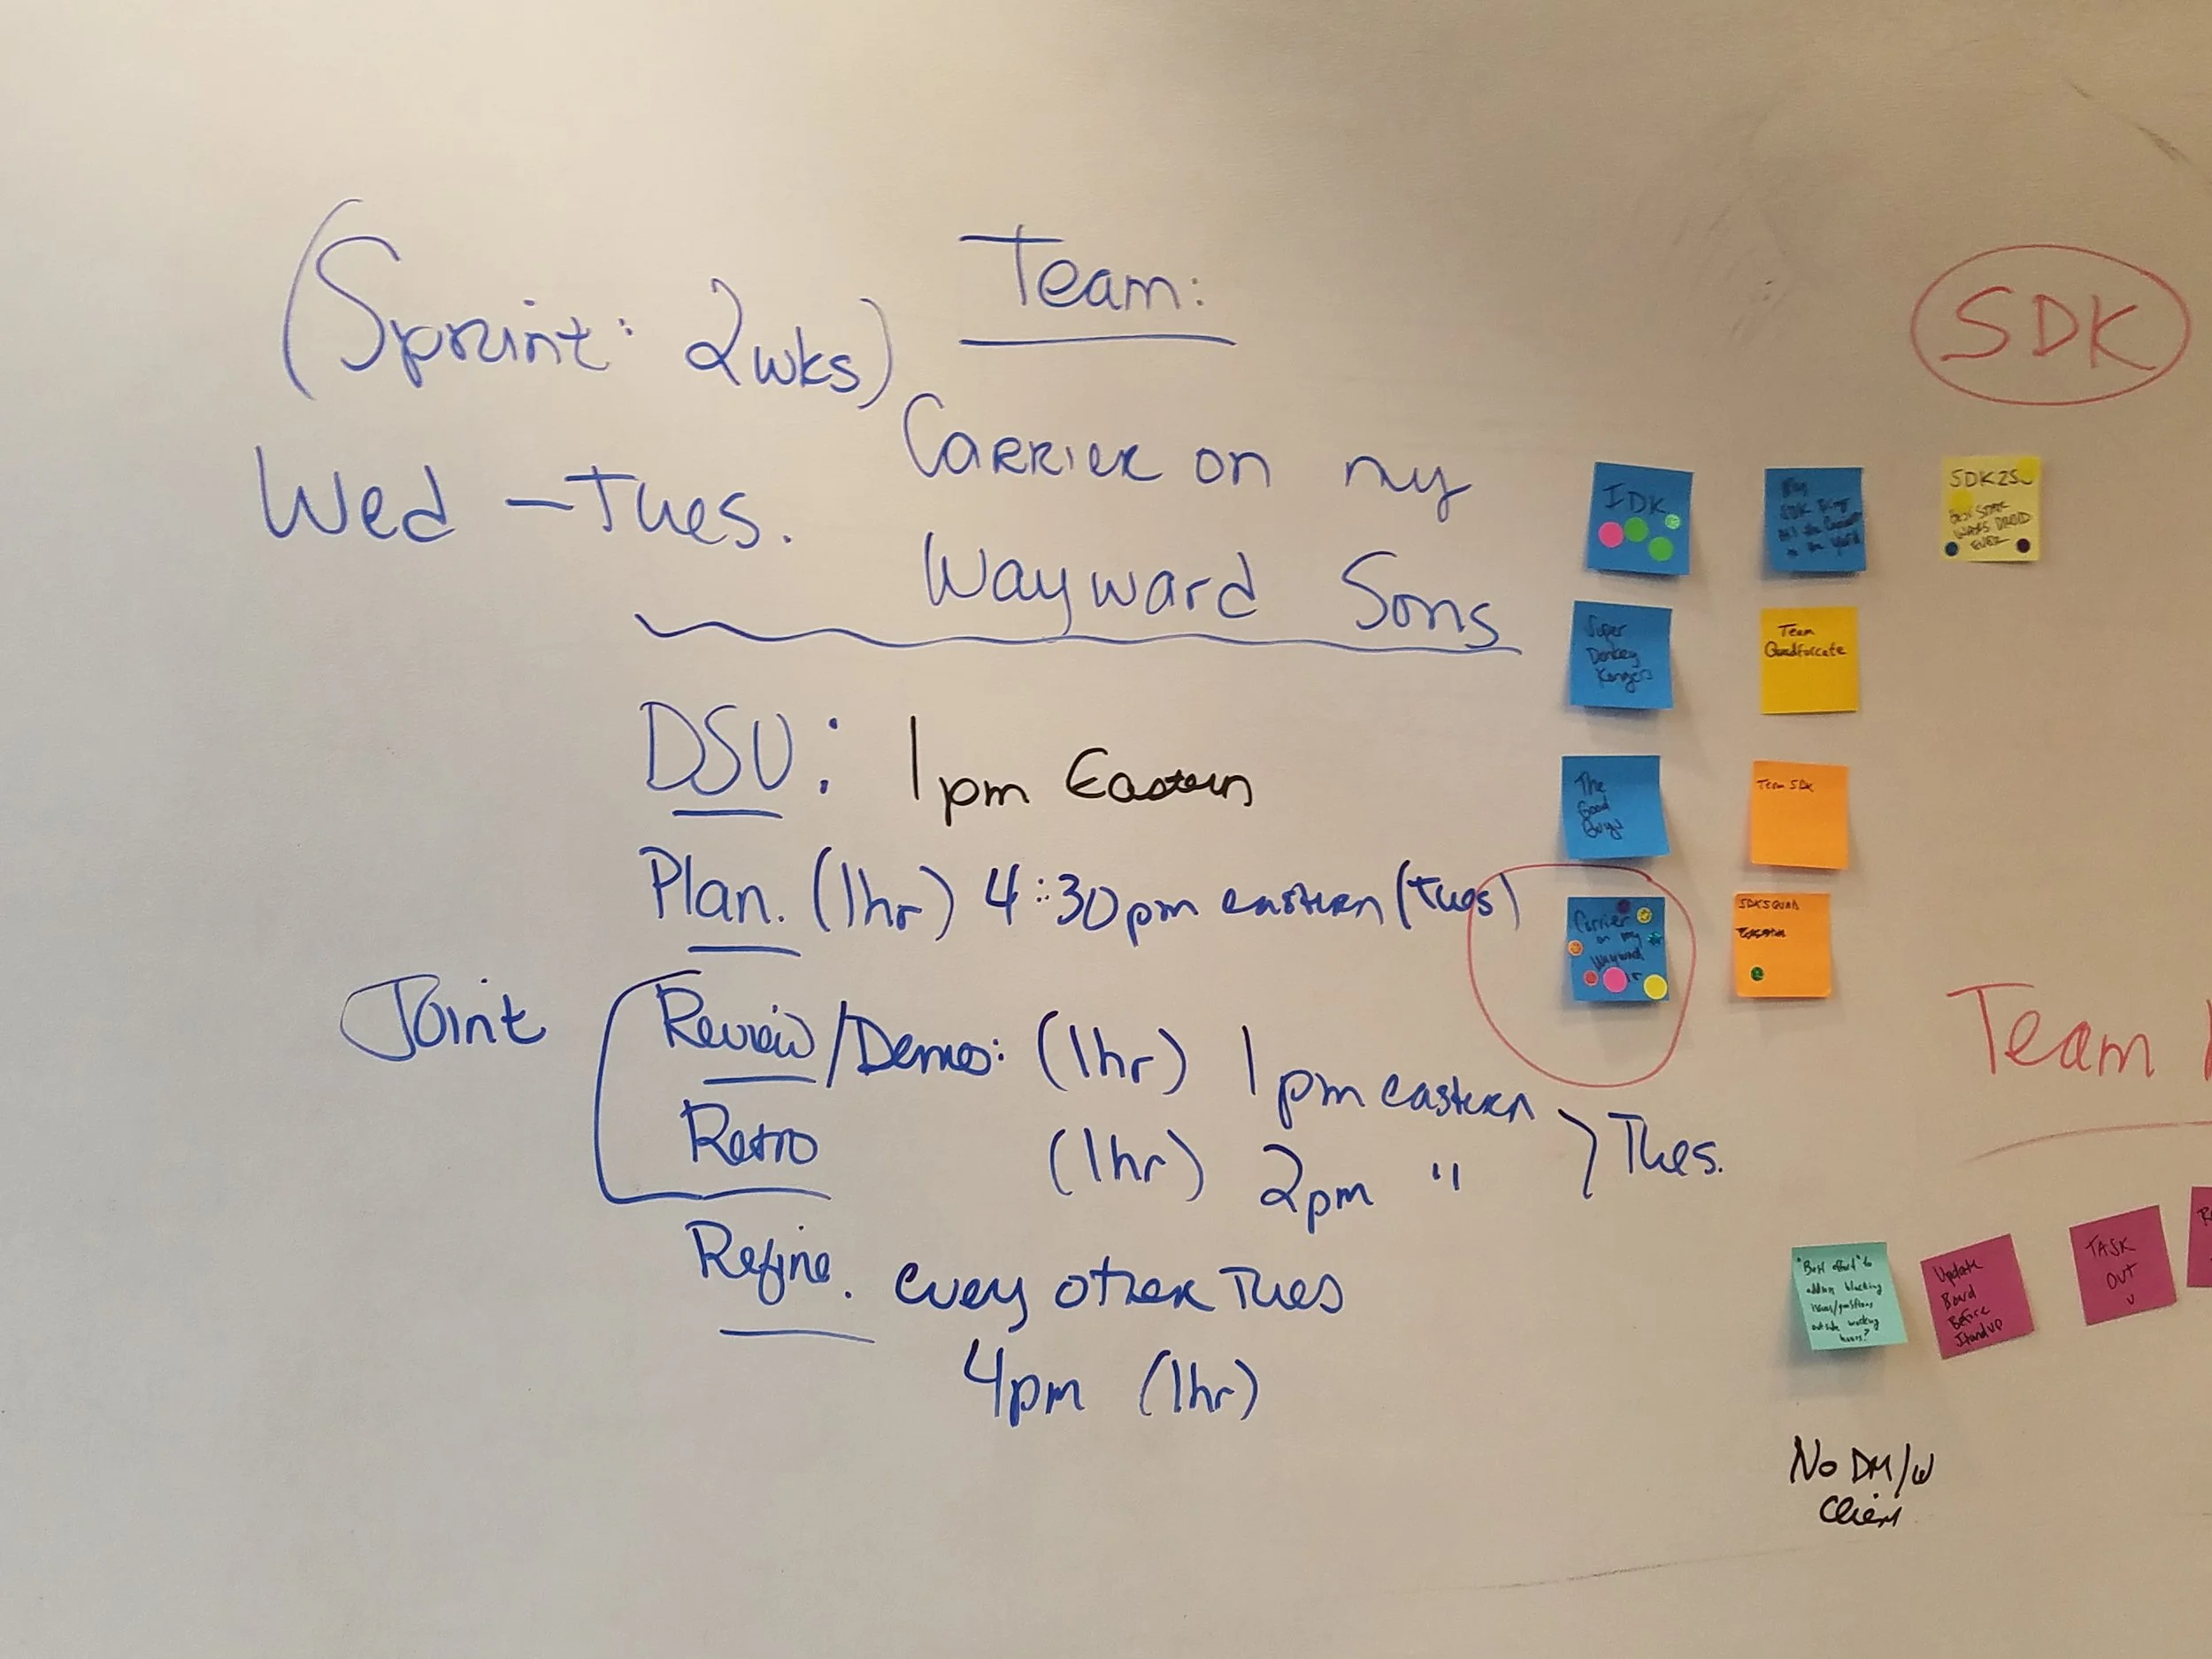 (Sprint: 2wks)
Wed - Tues.
Team:
Carrier on my
Wayward Sons
DSU: 1pm Eastern
Plan. (1hr) 4:30pm eastern (tues)
Joint
Review/Demos: (1hr) 1pm eastern
Retro (1hr) 2pm " } Tues.
Refine. every other Tues
4pm (1hr)
SDK
IDK
SDK2SU
Best STAR
WARS DROID
EVER
Super
Donkey
Kongers
Team
Quadfurcate
The
Good
Guys
Team SDK
Carrier
on my
Wayward
SDKSQUAD
Team
"Best effort" to
address blocking
issues/questions
outside working
hours?
Update
Board
Before
Standup
TASK
OUT
No DM/w
Client